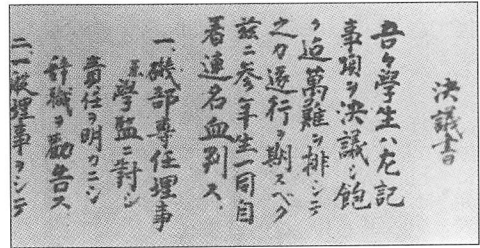 決議書
吾々學生ハ左記
事項ヲ決議シ飽
ク迄萬難ヲ排シテ
之カ遂行ヲ期スベク
玆ニ参年生一同自
署連名血判ス、
一、磯部専任理事
兼學監ニ對シ
責任ヲ明カニシ
辞職ヲ勧告ス
二、一般理事ヲシテ